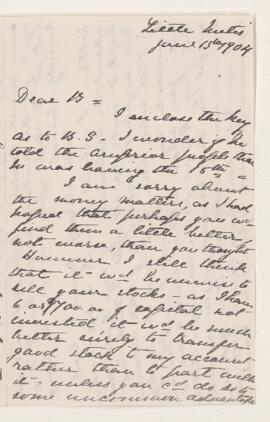 Little Metis
June 13th 1904
Dear B =
I enclose the key
as to B.S - I wonder if he
told the Superior people that
he was leaving the 15th =
I am sorry about
the money matters, as I had
hoped that perhaps you wd
find them a little better
not worse, than you thought
However I still think
that it wd be unwise to
sell your stocks - as I have
6 or $700. of capital not
invested, it wd be much
better surely to transfer
good stock to my account
rather than to part with
it - unless you cd do so to
some uncommon advantage